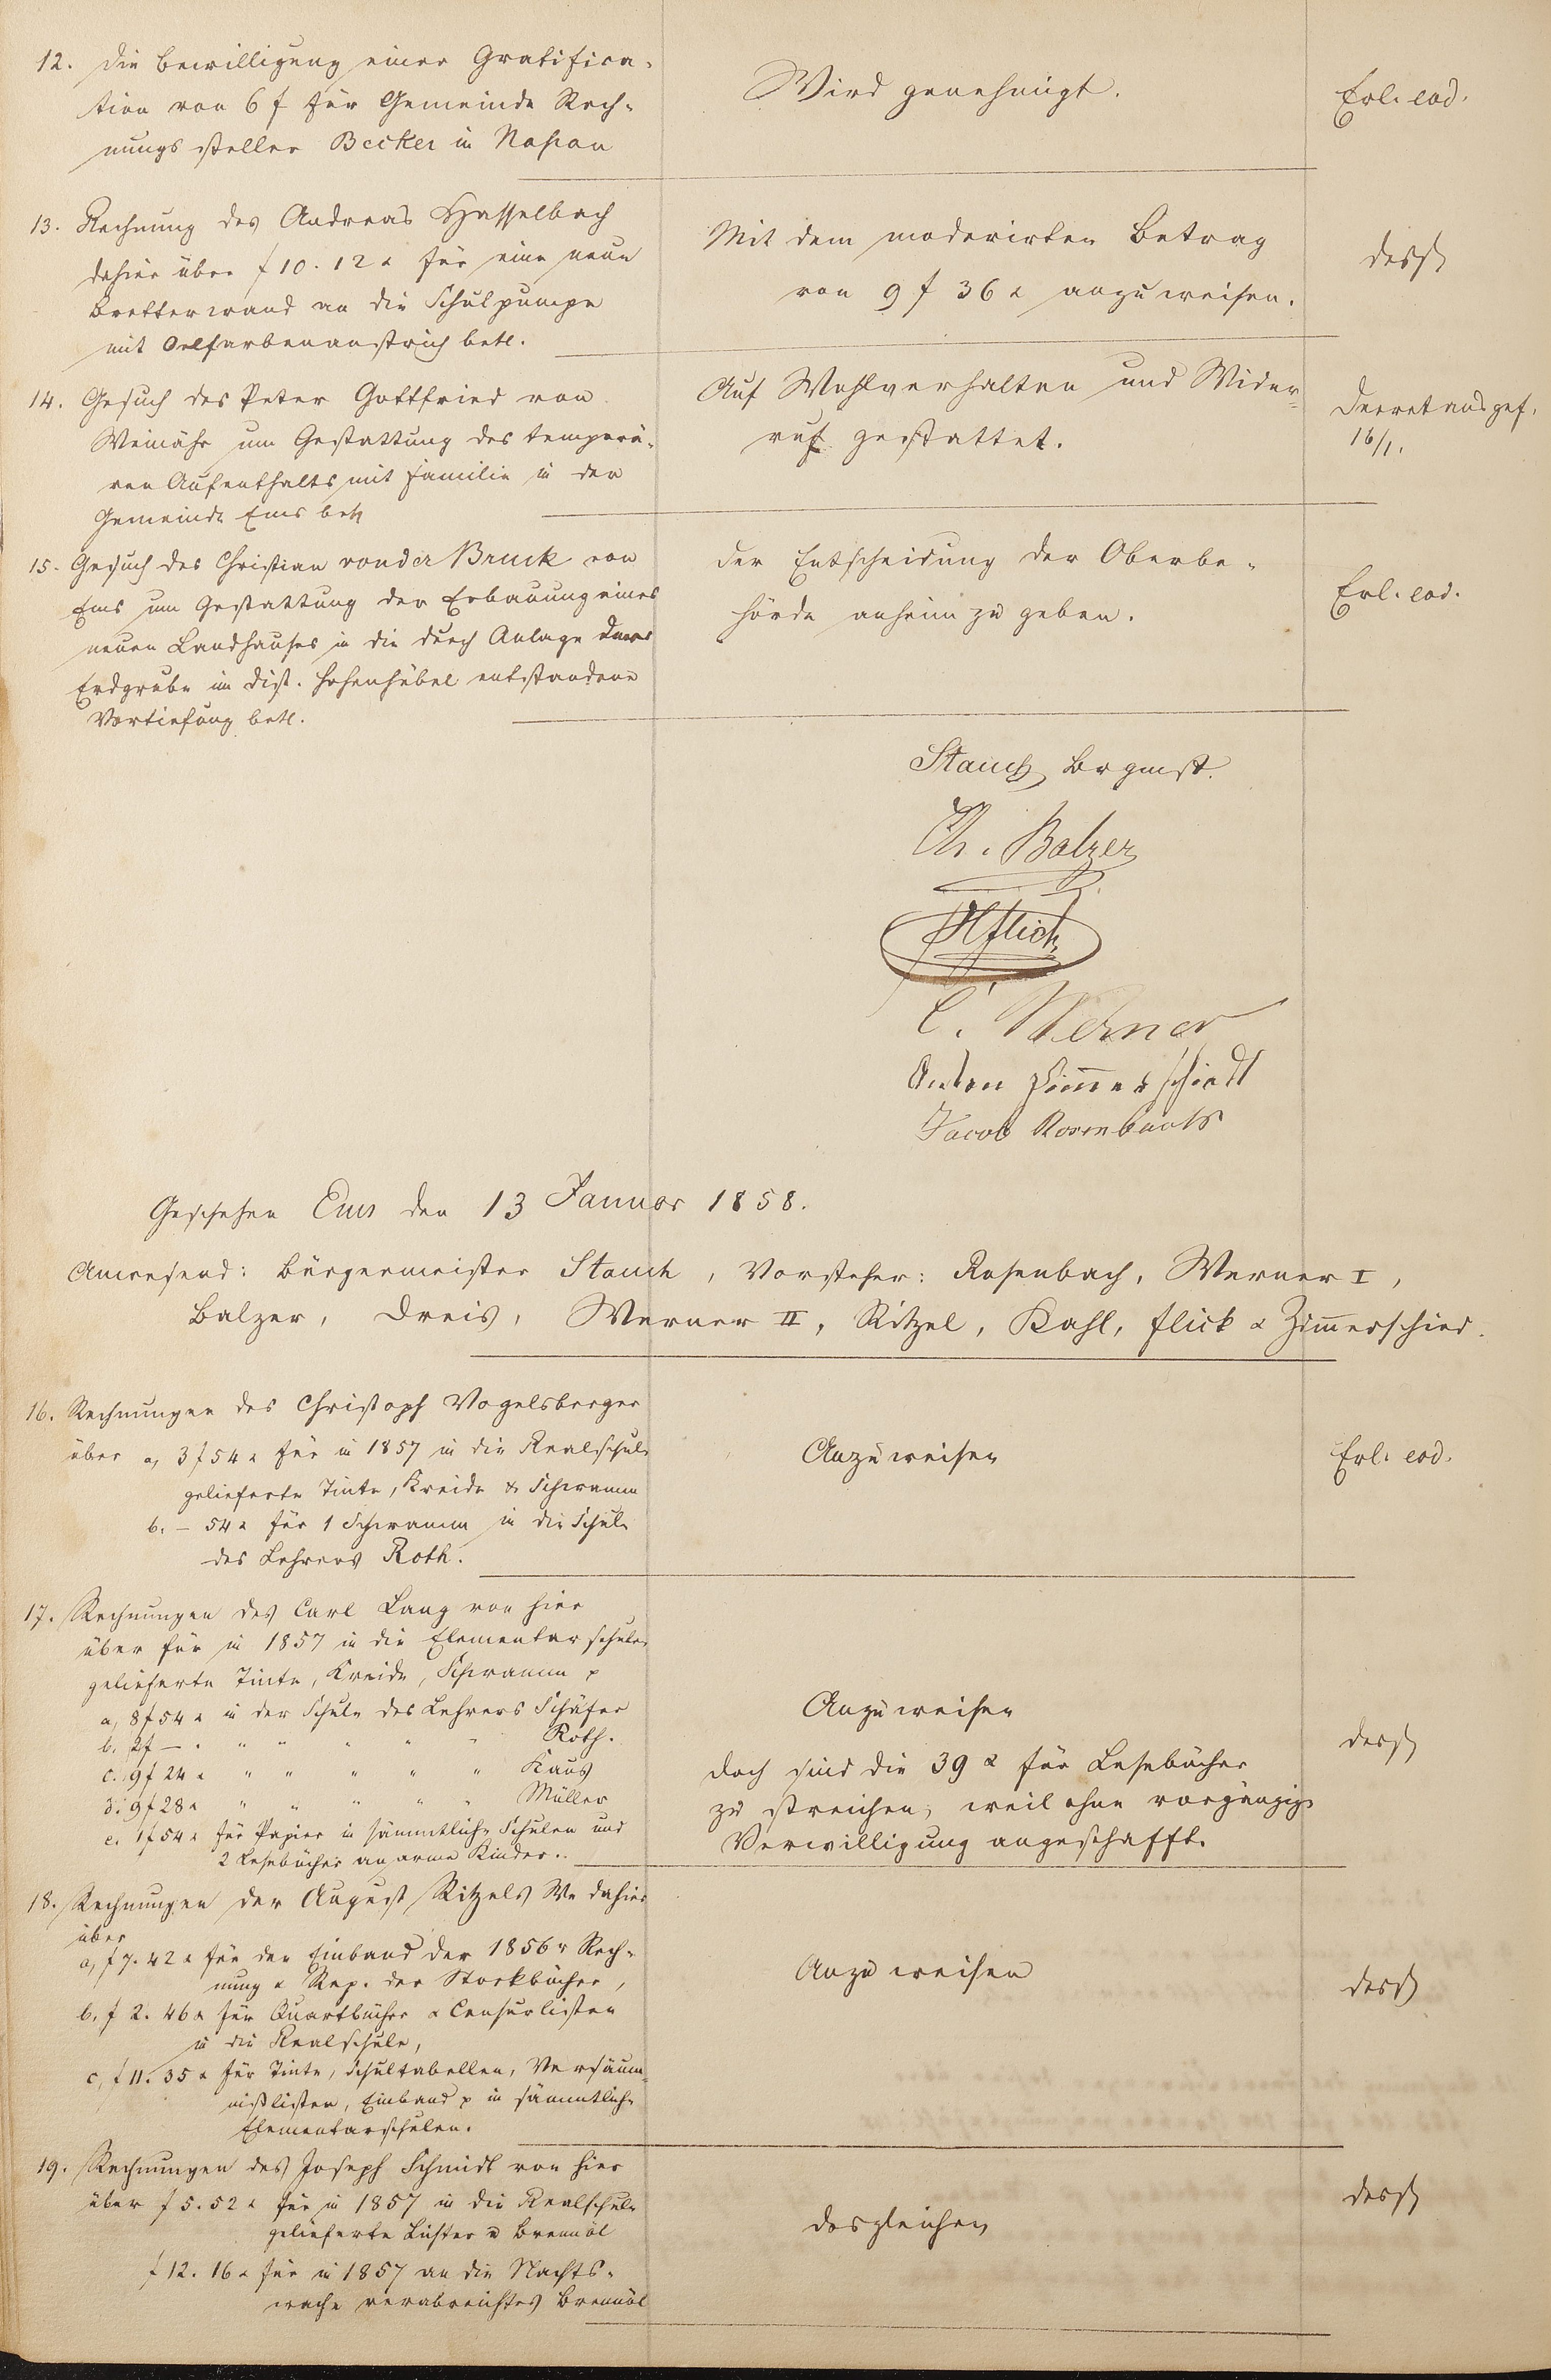 12. Die Bewilligung einer Gratifica-
tion von 6 f für Gemeinde Rech-
nungssteller Becker in Nassau
Wird genehmigt.
Erl. eod.
13. Rechnung des Andreas Hasselbach
dahier über f 10. 12 x für eine neue
Bretterwand an die Schulpumpe
mit Oelfarbenanstrich betr.
Mit dem moderirten Betrag
von 9 f 36 x anzuweisen.
desgl
14. Gesuch des Peter Gottfried von
Weinähr um Gestattung des temporä-
ren Aufenthalts mit Familie in der
Gemeinde Ems betr
Auf Wohlverhalten und Wider-
ruf gestattet.
Decret ausgef.
16/1.
15. Gesuch des Christian von der Bruck von
Ems um Gestattung der Erbauung eines
neuen Landhauses in die durch Anlage
Erdgrube im Dist. Hohenhübel entstandene
Vertiefung betr.
Der Entscheidung der Oberbe-
hörde anheim zu geben.
Erl. eod.
Stauch Brgmst.
Ch. Balzer
Flick
C. Werner
Anton Zimmerschiedt
Jacob Rosenbach
Geschehen Ems den 13 Januar 1858.
Anwesend: Bürgermeister Stauch, Vorsteher: Rosenbach, Werner I,
Balzer, Dreis, Werner II, Ritzel, Kahl, Flick & Zimmerschied.
16. Rechnungen des Christoph Vogelsberger
über a, 3 f 54 x für in 1857 in die Realschule
gelieferte Tinte, Kreide & Schwamm
b. – 54 x für 1 Schwamm in die Schule
des Lehrers Roth.
Anzuweisen
Erl. eod.
17. Rechnungen des Carl Lang von hier
über für in 1857 in die Elementarschulen
gelieferte Tinte, Kreide, Schwamm p
a, 8 f 54 x in der Schule des Lehrers Schäfer
b. 2 f — . " " " " " Roth.
c. 9 f 24 x " " " " " Kaus
d. 9 f 28 x " " " " " Müller
e. 1 f 54 x für Papier in sämmtliche Schulen und
2 Lesebücher an arme Kinder.
Anzuweisen
doch sind die 39 x für Lesebücher
zu streichen, weil ohne vorgängige
Verwilligung angeschafft.
desgl
18. Rechnungen der August Ritzels We dahier
über
a, f 7. 42 x für den Einband der 1856r Rech-
nung & Rep. der Stockbücher,
b, f 2. 46 x für Quartbücher & Censurlisten
in die Realschule,
c, f 11. 35 x für Tinte, Schultabellen, Versäum-
nißlisten, Einband p in sämmtliche
Elementarschulen.
Anzuweisen
desgl
19. Rechnungen des Joseph Schmidt von hier
über f 5. 52 x für in 1857 in die Realschule
gelieferte Lichter u Brennöl
f 12. 16 x für in 1857 an die Nachts-
wache verabreichtes Brennöl
desgleichen
desgl